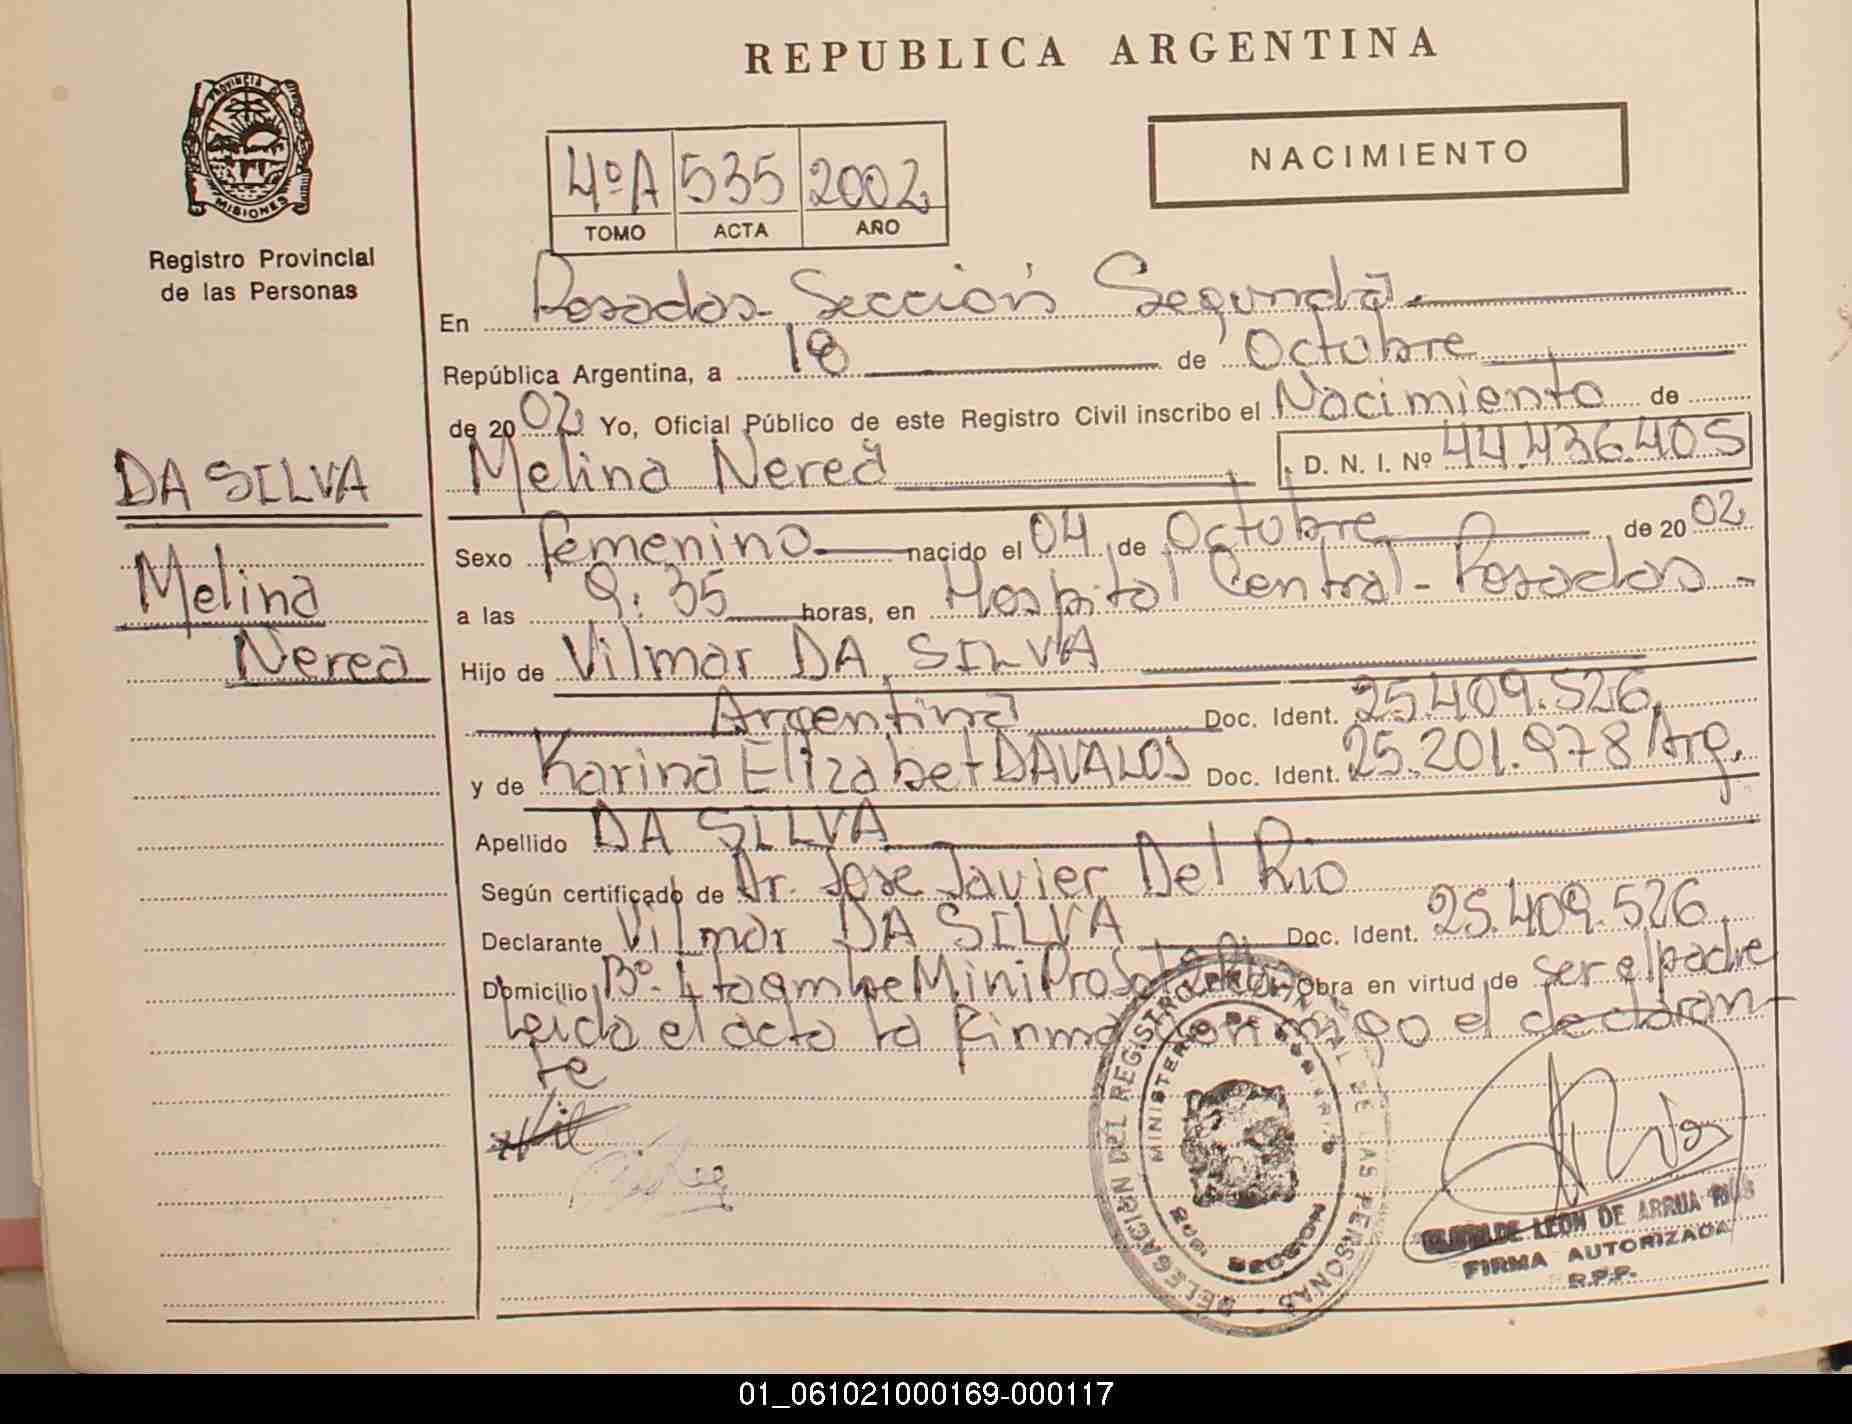 REPUBLICA ARGENTINA
PROVINCIA DE
MISIONES
Registro Provincial
de las Personas
4ºA 535 2002
TOMO ACTA AÑO
NACIMIENTO
En Posadas - Sección Segunda
República Argentina, a 18 de Octubre
de 2002 Yo, Oficial Público de este Registro Civil inscribo el Nacimiento de
Melina Nerea D. N. I. Nº 44.436.405
DA SILVA
Melina
Nerea
Sexo femenino nacido el 04 de Octubre de 2002
a las 9:35 horas, en Hospital Central - Posadas -
Hijo de Vilmar DA SILVA
Argentina Doc. Ident. 25.409.526
y de Karina Elizabet DAVALOS Doc. Ident. 25.201.978 Arg.
Apellido DA SILVA
Según certificado de Dr. Jose Javier Del Rio
Declarante Vilmar DA SILVA Doc. Ident. 25.409.526
Domicilio Bº. Itaembe Mini Obra en virtud de ser el padre
Leida el acta la firma conmigo el declaran-
te
DELEGACION DEL REGISTRO PROVINCIAL DE LAS PERSONAS
MINISTERIO DE
SECCION
LEON DE ARRUA
FIRMA AUTORIZADA
R.P.P.
01_061021000169-000117